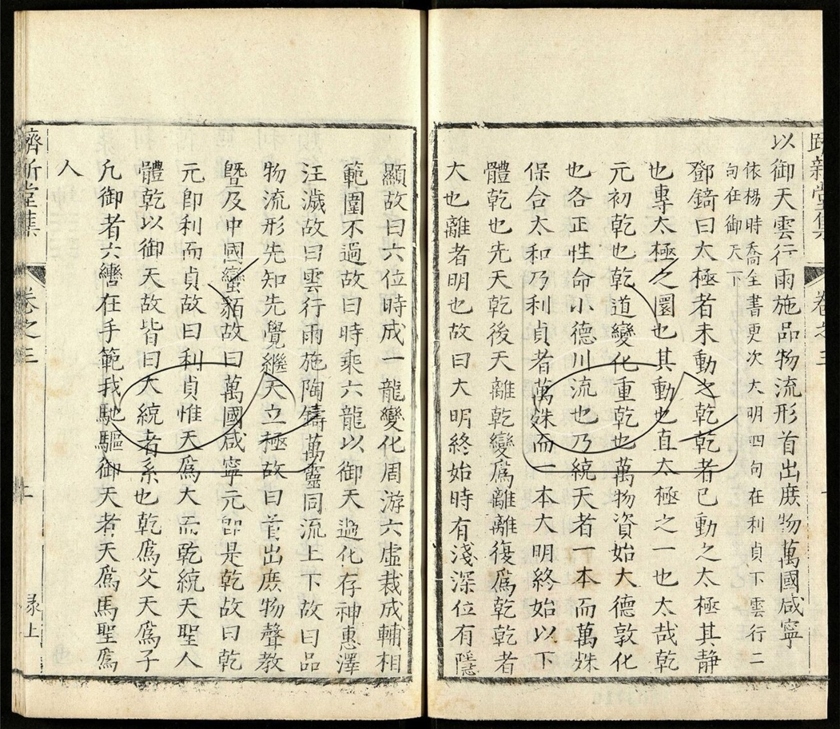 以御天雲行雨施品物流形首出庻物萬國咸寧
依楊時喬全書更次大明四句在利貞下雲行二
句在御天下
鄧錡曰太極者未動之乾乾者已動之太極其靜
也專太極之圜也其動也直太極之一也太哉乾
元初乾也乾道變化重乾也萬物資始大德敦化
也各正性命小德川流也乃統天者一本而萬殊
保合太和乃利貞者萬殊而一本大明終始以下
體乾也先天乾後天離乾變爲離離復爲乾乾者
大也離者明也故曰大明終始時有淺深位有隱
顯故曰六位時成一龍變化周游六虛裁成輔相
範圍不過故曰時乘六龍以御天過化存神惠澤
汪濊故曰雲行雨施陶鑄萬靈同流上下故曰品
物流形先知先覺繼天立極故曰首出庻物聲教
曁及中國蠻貊故曰萬國咸寧元卽是乾故曰乾
元卽利而貞故曰利貞惟天爲大而乾統天聖人
體乾以御天故皆曰大統者系也乾爲父天爲子
凢御者六轡在手範我馳驅御天者天爲馬聖爲
人
堂集
卷之三
彔上